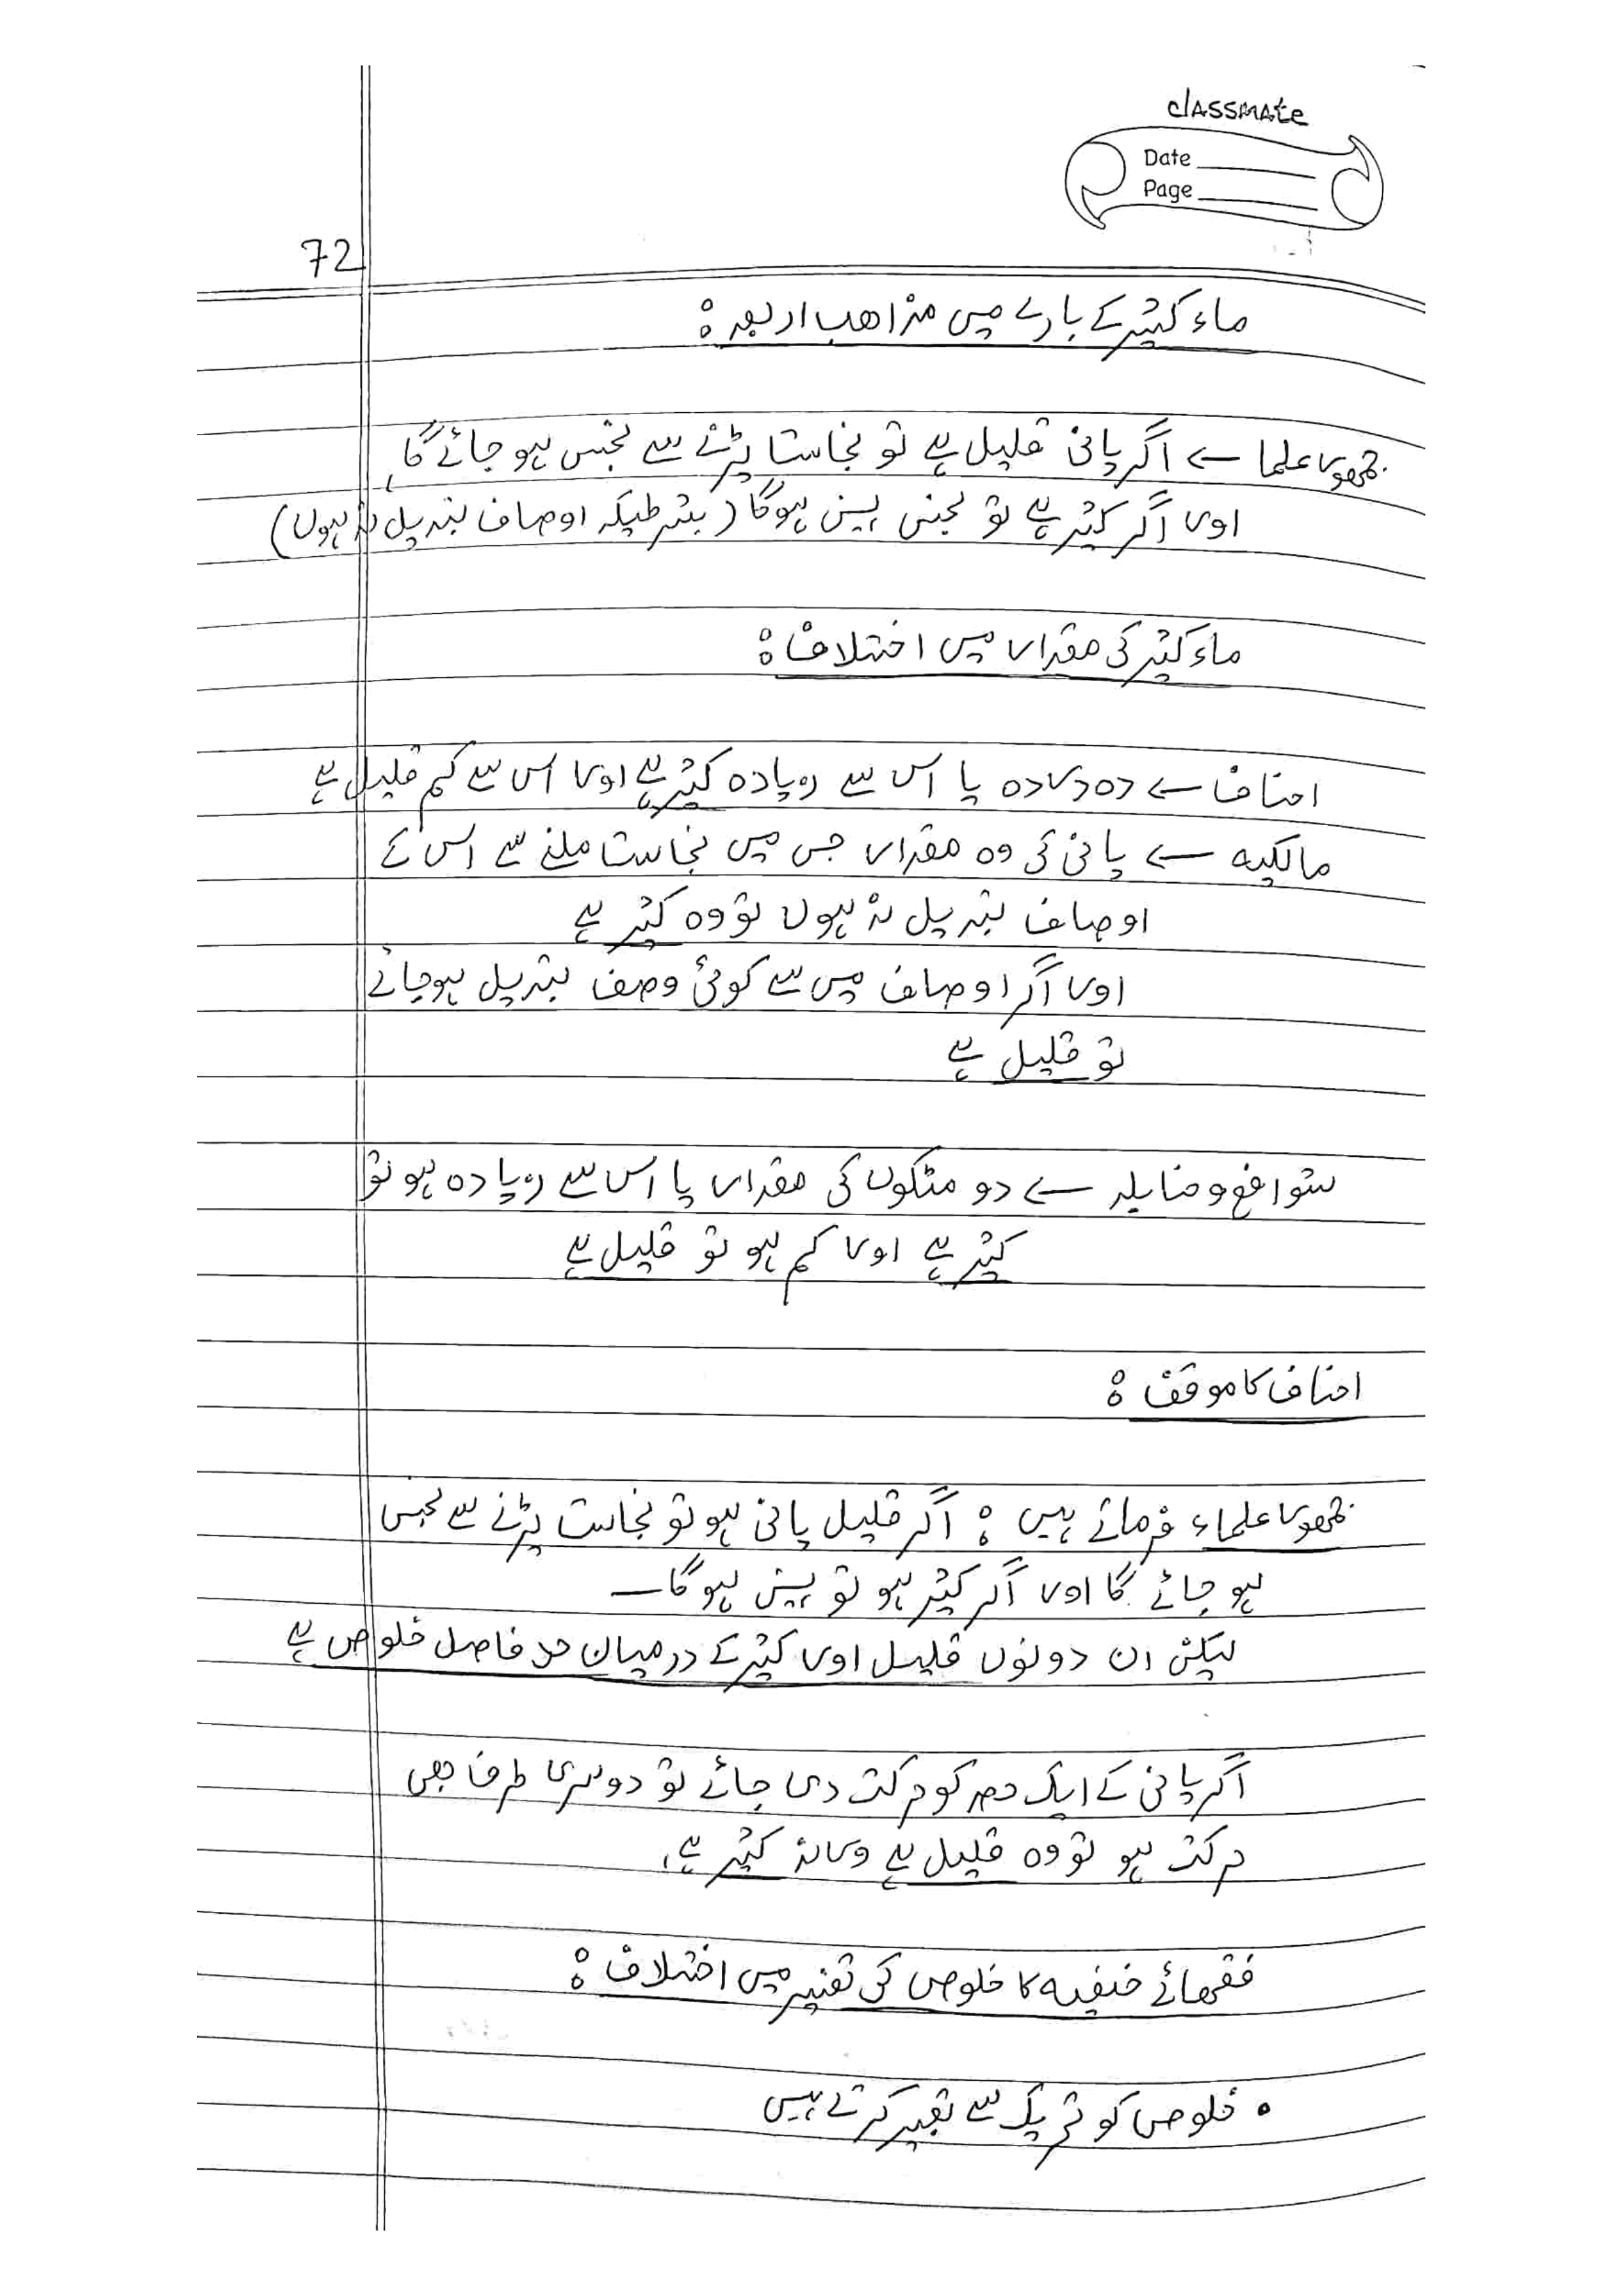 classmate
Date
Page
72
ماء کثیر کے بارے میں مذاھب اربعہ :
جمھور علما ← اگر پانی قلیل ہے تو نجاست پڑنے سے نجس ہو جائے گا
اور اگر کثیر ہے تو نجس نہیں ہوگا (بشرطیکہ اوصاف تبدیل نہ ہوں)
ماء کثیر کی مقدار میں اختلاف :
احناف ← دہ در دہ یا اس سے زیادہ کثیر ہے اور اس سے کم قلیل ہے
مالکیہ ← پانی کی وہ مقدار جس میں نجاست ملنے سے اس کے
اوصاف تبدیل نہ ہوں تو وہ کثیر ہے
اور اگر اوصاف میں سے کوئی وصف تبدیل ہو جائے
تو قلیل ہے
شوافع و حنابلہ ← دو مٹکوں کی مقدار یا اس سے زیادہ ہو تو
کثیر ہے اور کم ہو تو قلیل ہے
احناف کا موقف :
جمھور علماء فرماتے ہیں : اگر قلیل پانی ہو تو نجاست پڑنے سے نجس
ہو جائے گا اور اگر کثیر ہو تو نہیں ہوگا ـ
لیکن ان دونوں قلیل اور کثیر کے درمیان حد فاصل خلوص ہے
اگر پانی کے ایک حصہ کو حرکت دی جائے تو دوسری طرف بھی
حرکت ہو تو وہ قلیل ہے ورنہ کثیر ہے،
فقھائے حنفیہ کا خلوص کی تفسیر میں اختلاف :
• خلوص کو تحریک سے تعبیر کرتے ہیں